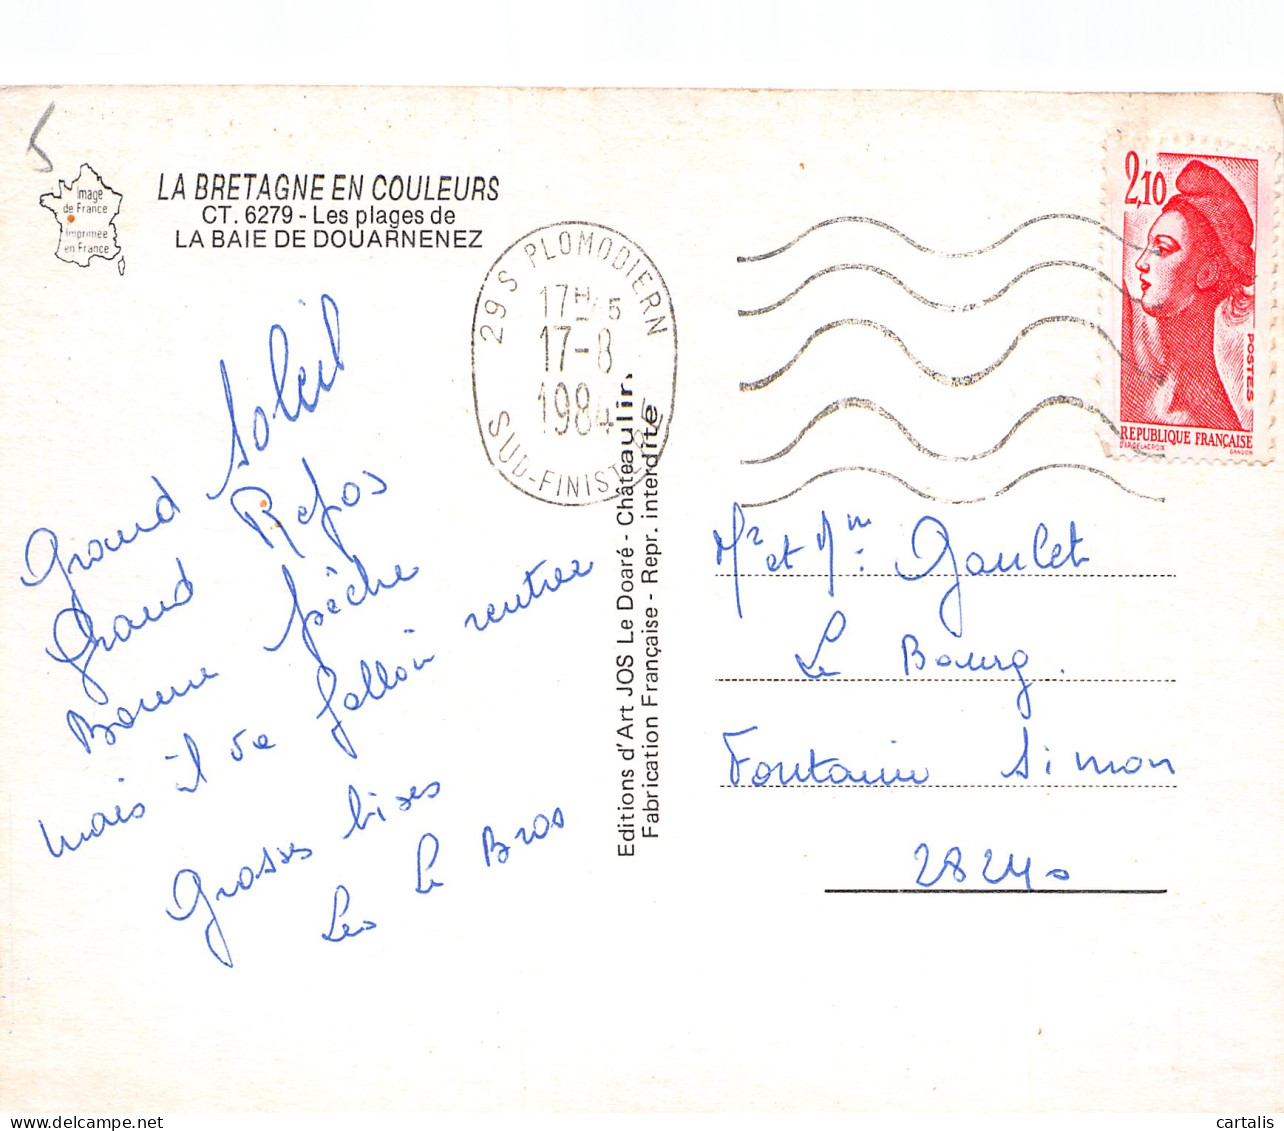 5
Image
de France
Imprimée
en France
LA BRETAGNE EN COULEURS
CT. 6279 - Les plages de
LA BAIE DE DOUARNENEZ
29 S PLOMODIERN
17H15
17-8
1984
SUD-FINISTERE
2,10
POSTES
REPUBLIQUE FRANÇAISE
D'AP. DELACROIX
GANDON
Grand Soleil
Grand Repos
Bonne pêche
mais il va falloir rentrer
Grosses bises
Les Le Bras
Editions d'Art JOS Le Doaré - Châteaulin.
Fabrication Française - Repr. interdite
Mr et Mme: Goulet
Le Bourg.
Fontaine Simon
28240
cartalis